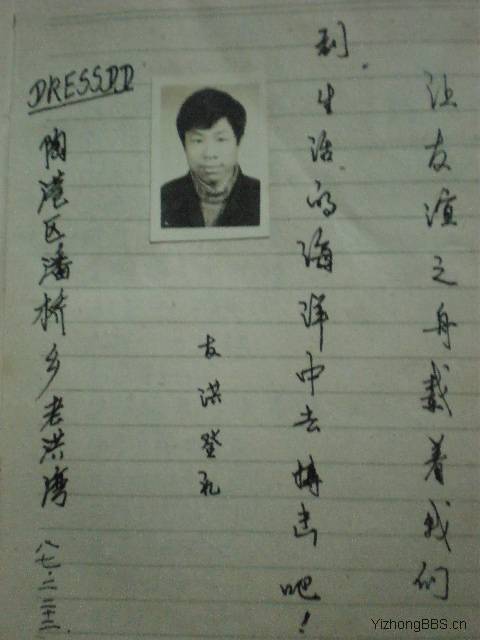 让友谊之舟载着我们
到生活的海洋中去搏击吧！
友洪登礼
DRESSDD
陶港区潘桥乡老洪湾
八七.二.二十二.
YizhongBBS.cn